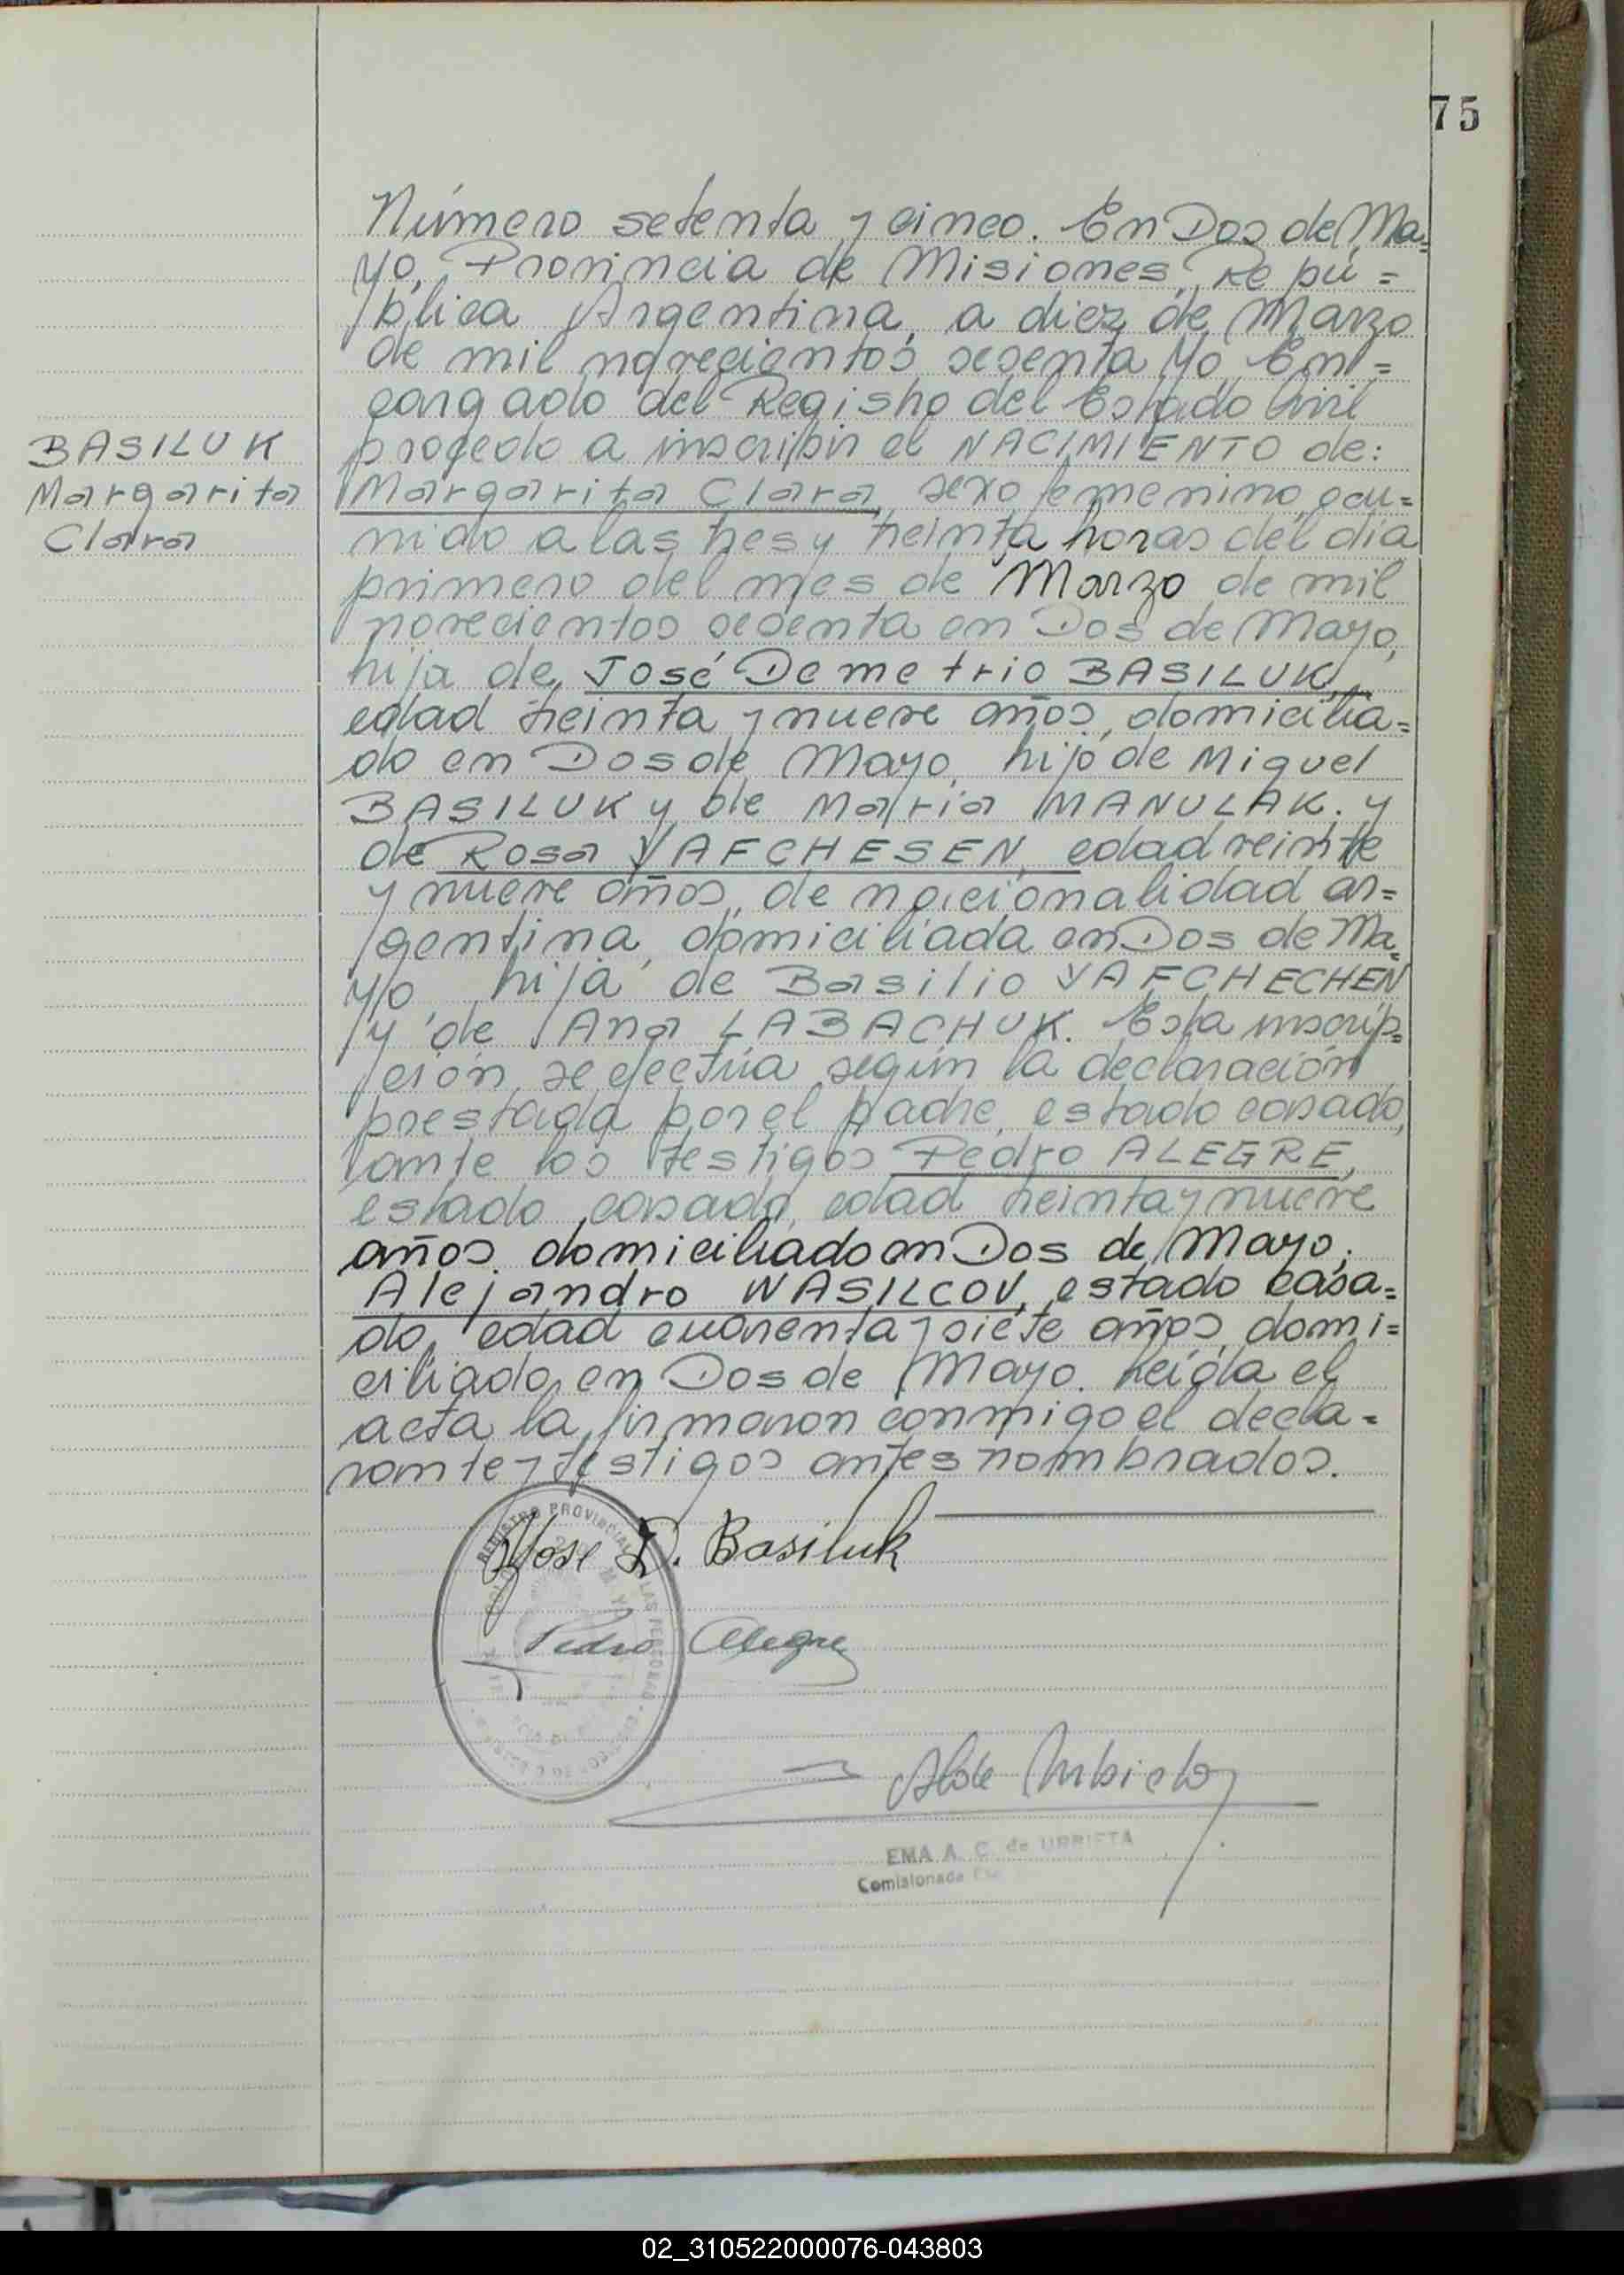 75
Número setenta y cinco. En Dos de Ma=
yo, Provincia de Misiones, Repú=
blica Argentina, a diez de Marzo
de mil novecientos sesenta Yo, En=
cargado del Registro del Estado Civil
procedo a inscribir el NACIMIENTO de:
BASILUK
Margarita
Clara
Margarita Clara, sexo femenino, ocu=
rrido a las tres y treinta horas del día
primero del mes de Marzo de mil
novecientos sesenta en Dos de Mayo,
hija de José Demetrio BASILUK,
edad treinta y nueve años, domicilia=
do en Dos de Mayo, hijo de Miguel
BASILUK y de María MANULAK. y
de Rosa YAFCHESEN, edad veinte
y nueve años, de nacionalidad ar=
gentina, domiciliada en Dos de Ma=
yo, hija de Basilio YAFCHECHEN
y de Ana LABACHUK. Esta inscrip=
ción se efectúa según la declaración
prestada por el padre, estado casado,
ante los testigos Pedro ALEGRE,
estado casado, edad treinta y nueve
años, domiciliado en Dos de Mayo;
Alejandro WASILCOV, estado casa=
do, edad cuarenta y siete años, domi=
ciliado en Dos de Mayo. Leída el
acta la firmaron conmigo el decla=
rante y testigos antes nombrados.
REGISTRO PROVINCIAL LAS PERSONAS
Jose D. Basiluk
Pedro Alegre
EMA A. C. de URRIETA
Comisionada
02_310522000076-043803